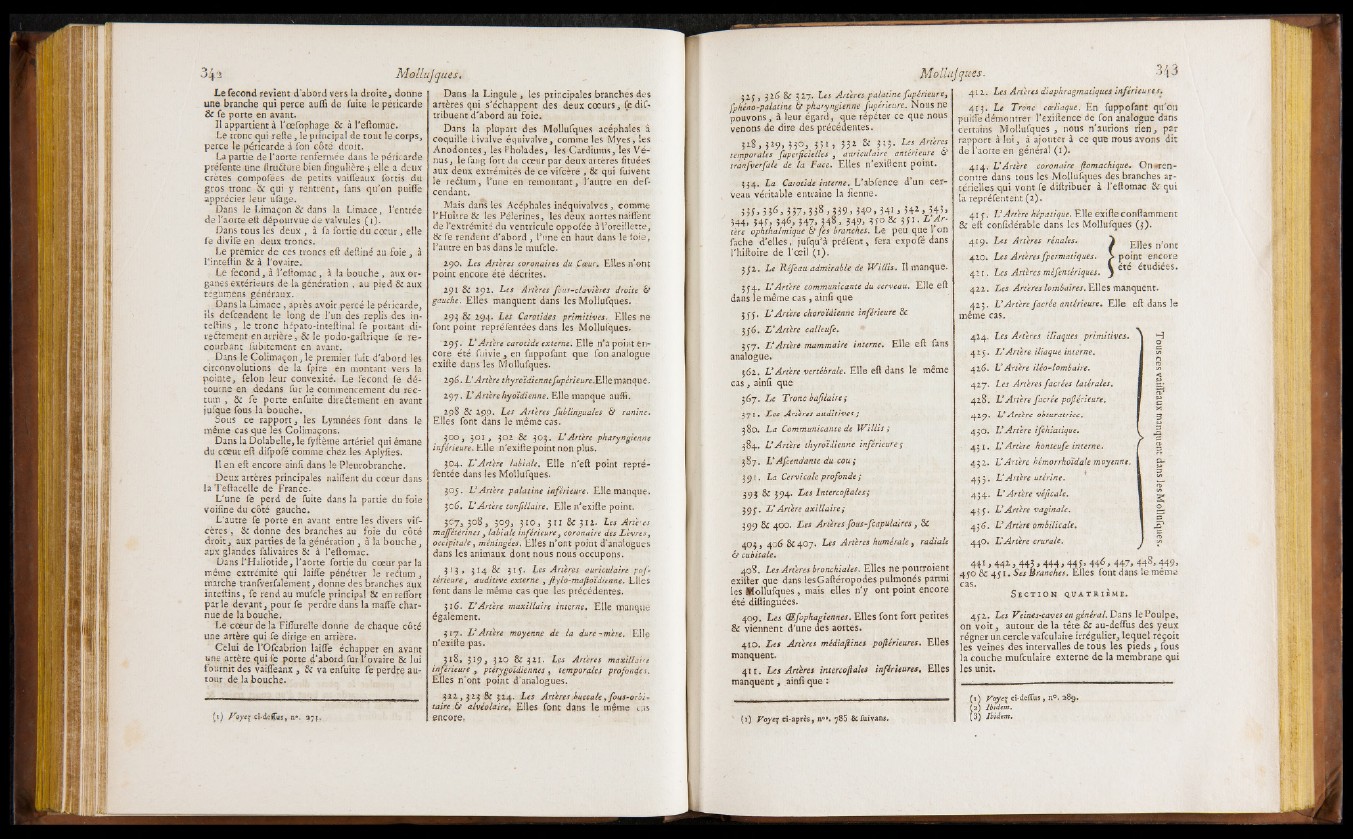 342 Mollusques.
Le second revient d'abord vers la droite, donne
une branche qui perce aussi de suite le péricarde
& se porte en avant.
Il appartient à l'œsophage & à l'estomac.
Le tronc qui reste, le principal de tout le corps,
perce le péricarde à son côté droit.
La partie de l'aorte renfermée dans le péricarde
présente une structure bien singulière; elle a deux
crêtes composées de petits vaisseaux sortis du
gros tronc & qui y rentrent, sans qu'on puisse
apprécier leur usage.
Dans le Limaçon & dans la Limace, l'entrée
de l'aorte est dépourvue de valvules (1).
Dans tous les deux, à sa sortie du cœur, elle
se divise en deux troncs.
Le premier de ces troncs est destiné au foie, à
l'intestin & à l'ovaire.
Le second, à l'estomac, à la bouche, aux or-
ganes extérieurs de la génération, au pied & aux
tégumens généraux.
Dans la Limace, après avoir percé le péricarde,
ils descendent le long de l'un des replis des in-
testins, le tronc hépato-intestinal se portant di-
rectement en arrière, & le podo-gastrique se re-
courbant subitement en avant.
Dans le Colimaçon, le premier suit d'abord les
circonvolutions de la spire en montant vers la
pointe, selon leur convexité. Le second se dé-
tourne en dedans sur le commencement du rec-
tum, & se porte ensuite directement en avant
jusque sous la bouche.
Sous ce rapport, les Lymnées sont dans le
même cas que les Colimaçons.
Dans la Dolabelle, le système artériel qui émane
du cœur est disposé comme chez les Aplysies.
Il en est encore ainsi dans le Pleurobranche.
Deux artères principales naissent du cœur dans
la Testacelle de France.
L'une se perd de suite dans la partie du foie
voisine du côté gauche.
L'autre se porte en avant entre les divers vis-
cères, & donne des branches au foie du côté
droit, aux parties de la génération, à la bouche,
aux glandes salivaires & à l'estomac.
Dans l'Haliotide, l'aorte sortie du cœur par la
même extrémité qui laisse pénétrer le rectum,
marche transversalement, donne des branches aux
intestins, se rend au muscle principal & en ressort
par le devant, pour se perdre dans la masse char-
nue de la bouche.
Le cœur de la Fissurelle donne de chaque côté
une artère qui se dirige en arrière.
Celui de l'Oscabrion laisse échapper en avant
une artère qui se porte d'abord sur l'ovaire & lui
fournit des vaisseaux, & va ensuite se perdre au-
tour de la bouche.
(1) Voyez ci-dessus, n°. 271.
Dans la Lingule, les principales branches des
artères qui s'échappent des deux cœurs, se dis-
tribuent d'abord au foie.
Dans la plupart des Mollusques acéphales à
coquille bivalve équivalve, comme les Myes, les
Anodontes, les Pholades, les Cardiums, les Vé-
nus, le sang sort du cœur par deux artères situées
aux deux extrémités de ce viscère, & qui suivent
le rectum, l'une en remontant, l'autre en des-
cendant.
Mais dans les Acéphales inéquivalves, comme
l'Huître & les Pélerines, les deux aortes naissent
de l'extrémité du ventricule opposée à l'oreillette,
& se rendent d'abord, l'une en haut dans le foie,
l'autre en bas dans le muscle.
290. Les Artères coronaires du Cœur. Elles n'ont
point encore été décrites.
291 & 292. Les Artères sous-clavières droite &
gauche. Elles manquent dans les Mollusques.
293 & 294. Les Carotides primitives. Elles ne
sont point représentées dans les Mollusques.
295. L'Artère carotide externe. Elle n'a point en-
core été suivie, en supposant que son analogue
existe dans les Mollusques.
296. L'Artère thyroïdienne supérieure. Elle manque.
297. L'Artère hyoïdienne. Elle manque aussi.
298 & 299. Les Artères sublinguales & ranine.
Elles sont dans le même cas.
300, 301, 302 & 303. L'Artère pharyngienne
inférieure. Elle n'existe point non plus.
304. L'Artère labiale. Elle n'est point repré-
sentée dans les Mollusques.
305. L'Artère palatine inférieure. Elle manque.
306. L'Artère tonsillaire. Elle n'existe point.
307, 308, 309, 310, 311 & 312. Les Artères
massétérines, labiale inférieure, coronaire des Lèvres,
occipitale, méningées. Elles n'ont point d'analogues
dans les animaux dont nous nous occupons.
313, 314 & 315. Les Artères auriculaire pos-
térieure, auditive externe, stylo-mastoïdienne. Elles
sont dans le même cas que les précédentes.
316. L'Artère maxillaire interne. Elle manque
également.
317. L'Artère moyenne de la dure-mère. Elle
n'existe pas.
318, 319, 320 & 321. Les Artères maxillaire
inférieure, ptérygoïdiennes, temporales profondes.
Elles n'ont point d'analogues.
322, 323 & 324. Les Artères buccale, sous-orbi-
taire & alvéolaire. Elles sont dans le même cas
encore.
Mollusques. 343
325, 326 & 327. Les Artères palatine supérieure,
sphéno-palatine & pharyngienne supérieure. Nous ne
pouvons, à leur égard, que répéter ce que nous
venons de dire des précédentes.
328, 329, 330, 331, 332 & 333. Les Artères
temporales superficielles, auriculaire antérieure &
transversale de la Face. Elles n'existent point.
334. La Carotide interne. L'absence d'un cer-
veau véritable entraîne la sienne.
335, 336, 337, 338, 339, 340, 341, 342, 343,
344, 345, 346, 347, 348, 349, 350 & 351. L'Ar-
tère ophthalmique & ses branches. Le peu que l'on
sache d'elles, jusqu'à présent, sera exposé dans
l'histoire de l'œil (1).
352. Le Réseau admirable de Willis. Il manque.
354. L'Artère communicante du cerveau. Elle est
dans le même cas, ainsi que
355. L'Artère choroïdienne inférieure &
356. L'Artère calleuse.
357. L'Artère mammaire interne. Elle est sans
analogue.
362. L'Artère vertébrale. Elle est dans le même
cas, ainsi que
367. Le Tronc basilaire;
371. Les Artères auditives;
380. La Communicante de Willis;
384. L'Artère thyroïdienne inférieure;
387. L'Ascendante du cou;
391. La Cervicale profonde;
393 & 394. Les Intercostales;
395. L'Artère axillaire;
399 & 400. Les Artères sous-scapulaires, &
403, 406 & 407. Les Artères humérale, radiale
& cubitale.
408. Les Artères bronchiales. Elles ne pourroient
exister que dans les Gastéropodes pulmonés parmi
les Mollusques, mais elles n'y ont point encore
été distinguées.
409. Les Œsophagiennes. Elles sont fort petites
& viennent d'une des aortes.
410. Les Artères médiastines postérieures. Elles
manquent.
411. Les Artères intercostales inférieures. Elles
manquent, ainsi que:
(1) Voyez ci-après, nos. 785 & suivans.
412. Les Artères diaphragmatiques inférieures.
413. Le Tronc cœliaque. En supposant qu'on
puisse démontrer l'existence de son analogue dans
certains Mollusques, nous n'aurions rien, par
rapport à lui, à ajouter à ce que nous avons dit
de l'aorte en général (1).
414. L'Artère coronaire stomachique. On ren-
contre dans tous les Mollusques des branches ar-
térielles qui vont se distribuer à l'estomac & qui
la représentent (2).
415. L'Artère hépatique. Elle existe constamment
& est considérable dans les Mollusques (3).
419. Les Artères rénales.
420. Les Artères spermatiques.
421. Les Artères mésentériques.
Elles n'ont
point encore
été étudiées.
422. Les Artères lombaires. Elles manquent.
423. L'Artère sacrée antérieure. Elle est dans le
même cas.
424. Les Artères iliaques primitives.
425. L'Artère iliaque interne.
426. L'Artère iléo-lombaire.
427. Les Artères sacrées latérales.
428. L'Artère sacrée postérieure.
429. L'Artère obturatrice.
430. L'Artère ischiatique.
431. L'Artère honteuse interne.
432. L'Artère hémorrhoïdale moyenne.
433. L'Artère utérine.
434. L'Artère vésicale.
435. L'Artère vaginale.
436. L'Artère ombilicale.
440. L'Artère crurale.
Tous ces vaisseaux manquent dans les Mollusques.
441, 442, 443, 444, 445, 446, 447, 448, 449,
450 & 451. Ses Branches. Elles sont dans le même
cas.
SECTION QUATRIÈME.
452. Les Veines-caves en général. Dans le Poulpe,
on voit, autour de la tête & au-dessus des yeux
régner un cercle vasculaire irrégulier, lequel reçoit
les veines des intervalles de tous les pieds, sous
la couche musculaire externe de la membrane qui
les unit.
(1) Voyez ci-dessus, n°. 289.
(2) Ibidem.
(3) Ibidem.